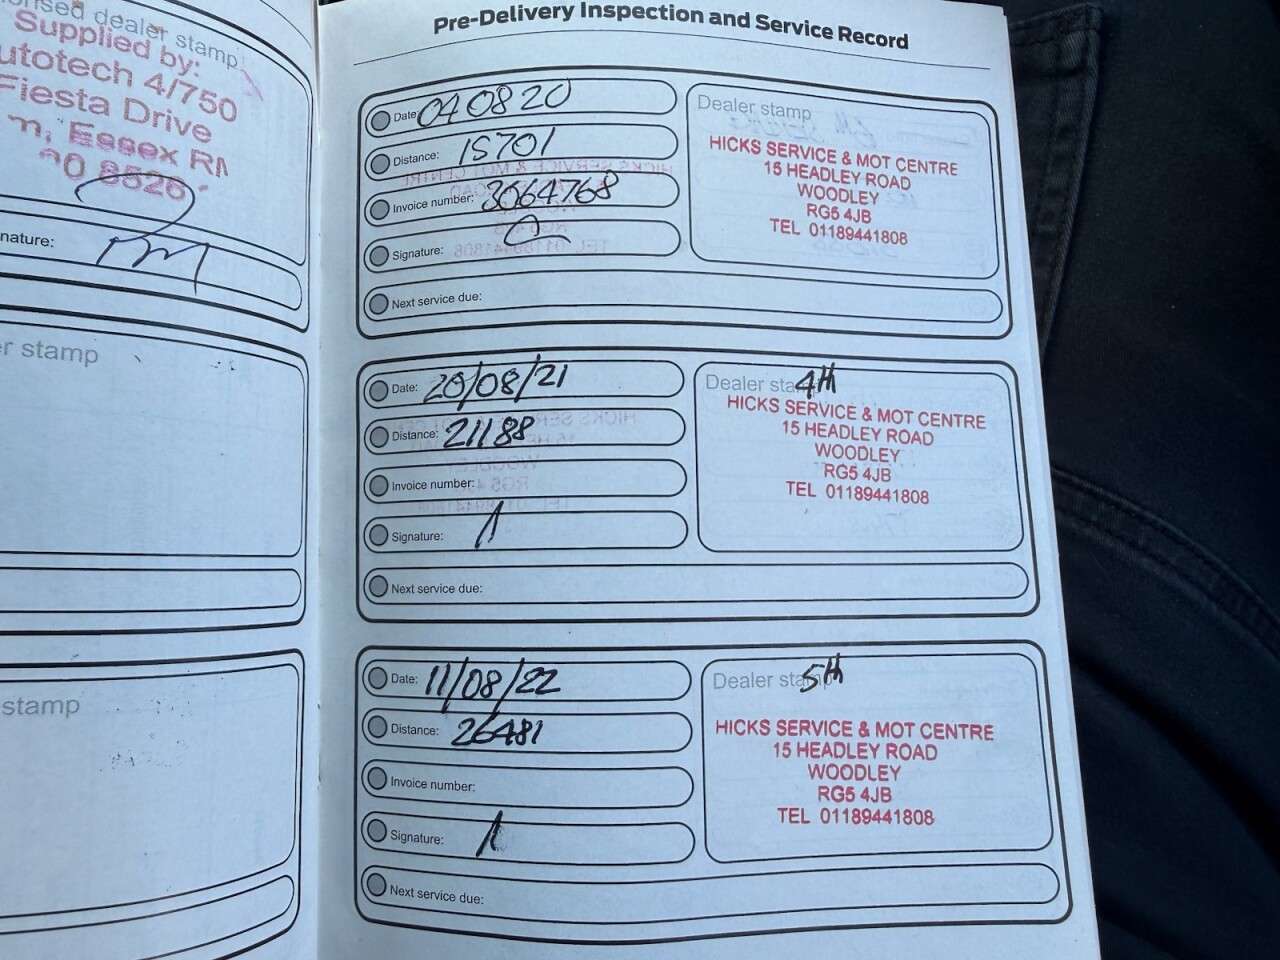 dealer stamp
Supplied by:
4/750
Fiesta Drive
Essex
nature:
stamp
stamp
Pre-Delivery Inspection and Service Record
Date: 040820
Distance: 15701
Invoice number: 3064768
Signature:
Next service due:
Dealer stamp
HICKS SERVICE & MOT CENTRE
15 HEADLEY ROAD
WOODLEY
RG5 4JB
TEL 01189441808
Date: 20/08/21
Distance: 21188
Invoice number:
Signature:
Next service due:
Dealer 4th
HICKS SERVICE & MOT CENTRE
15 HEADLEY ROAD
WOODLEY
RG5 4JB
TEL 01189441808
Date: 11/08/22
Distance: 26481
Invoice number:
Signature:
Next service due:
Dealer stamp 5th
HICKS SERVICE & MOT CENTRE
15 HEADLEY ROAD
WOODLEY
RG5 4JB
TEL 01189441808